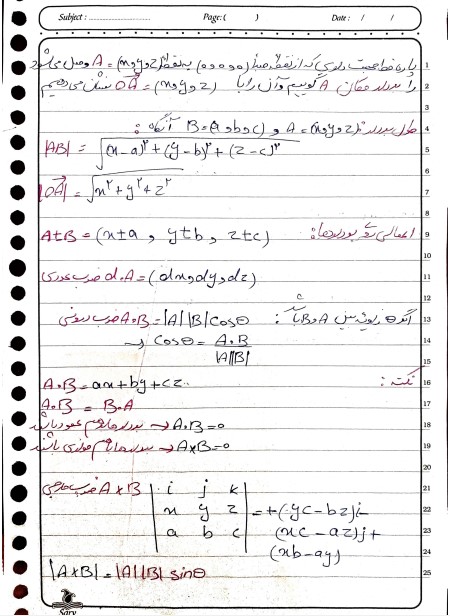 Subject : Page: ( ) Date : / /
پاره خط جهت داری که از نقطه مبدأ (0 و 0 و 0) به نقطه A = (x و y و z) وصل می‌شود
را بردار مکان A گوییم و آن را با OA = (x و y و z) نشان می‌دهیم
طول بردار: A = (x و y و z) و B = (a و b و c) آنگاه :
|AB| = √(x-a)² + (y-b)² + (z-c)²
|OA| = √x² + y² + z²
اعمال روی بردارها:
A±B = (x±a , y±b , z±c)
ضرب عددی d.A = (dx, dy, dz)
اگر θ زاویه بین A و B باشد :
ضرب درونی A.B = |A||B| cosθ
→ cosθ = A.B / |A||B|
نکته :
A.B = ax + by + cz
A.B = B.A
بردارها برهم عمود باشند → A.B = 0
بردارها باهم موازی باشند → A×B = 0
ضرب خارجی A×B | i j k |
| x y z | = +(yc - bz)i -
| a b c | (xc - az)j +
(xb - ay)
|A×B| = |A||B| sinθ
1
2
3
4
5
6
7
8
9
10
11
12
13
14
15
16
17
18
19
20
21
22
23
24
25
Sarv